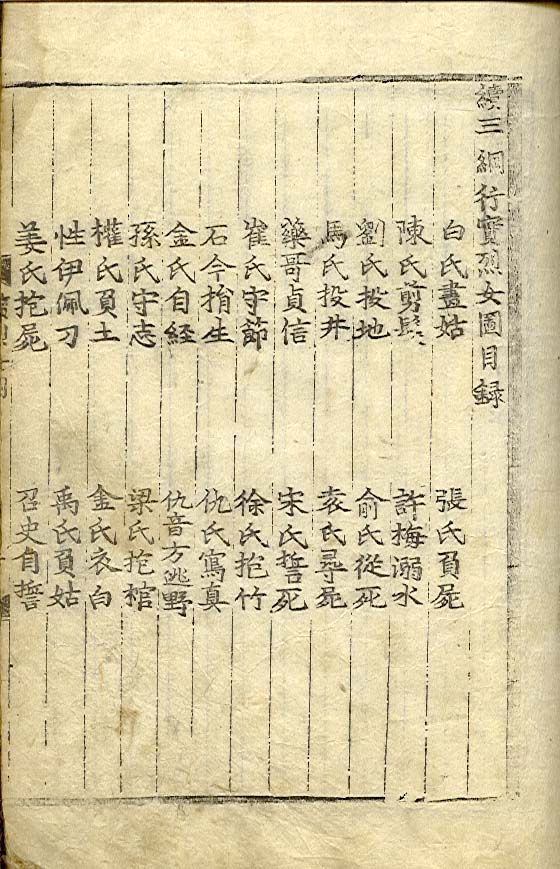 續三綱行實烈女圖目録
白氏畫姑 張氏負屍
陳氏剪髢 許梅溺水
劉氏投地 俞氏從死
馬氏投井 袁氏尋屍
藥哥貞信 宋氏誓死
崔氏守節 徐氏抱竹
石今捐生 仇氏寫真
金氏自經 仇音方逃野
孫氏守志 梁氏抱棺
權氏負土 金氏衣白
性伊佩刀 禹氏負姑
姜氏抱屍 召史自誓